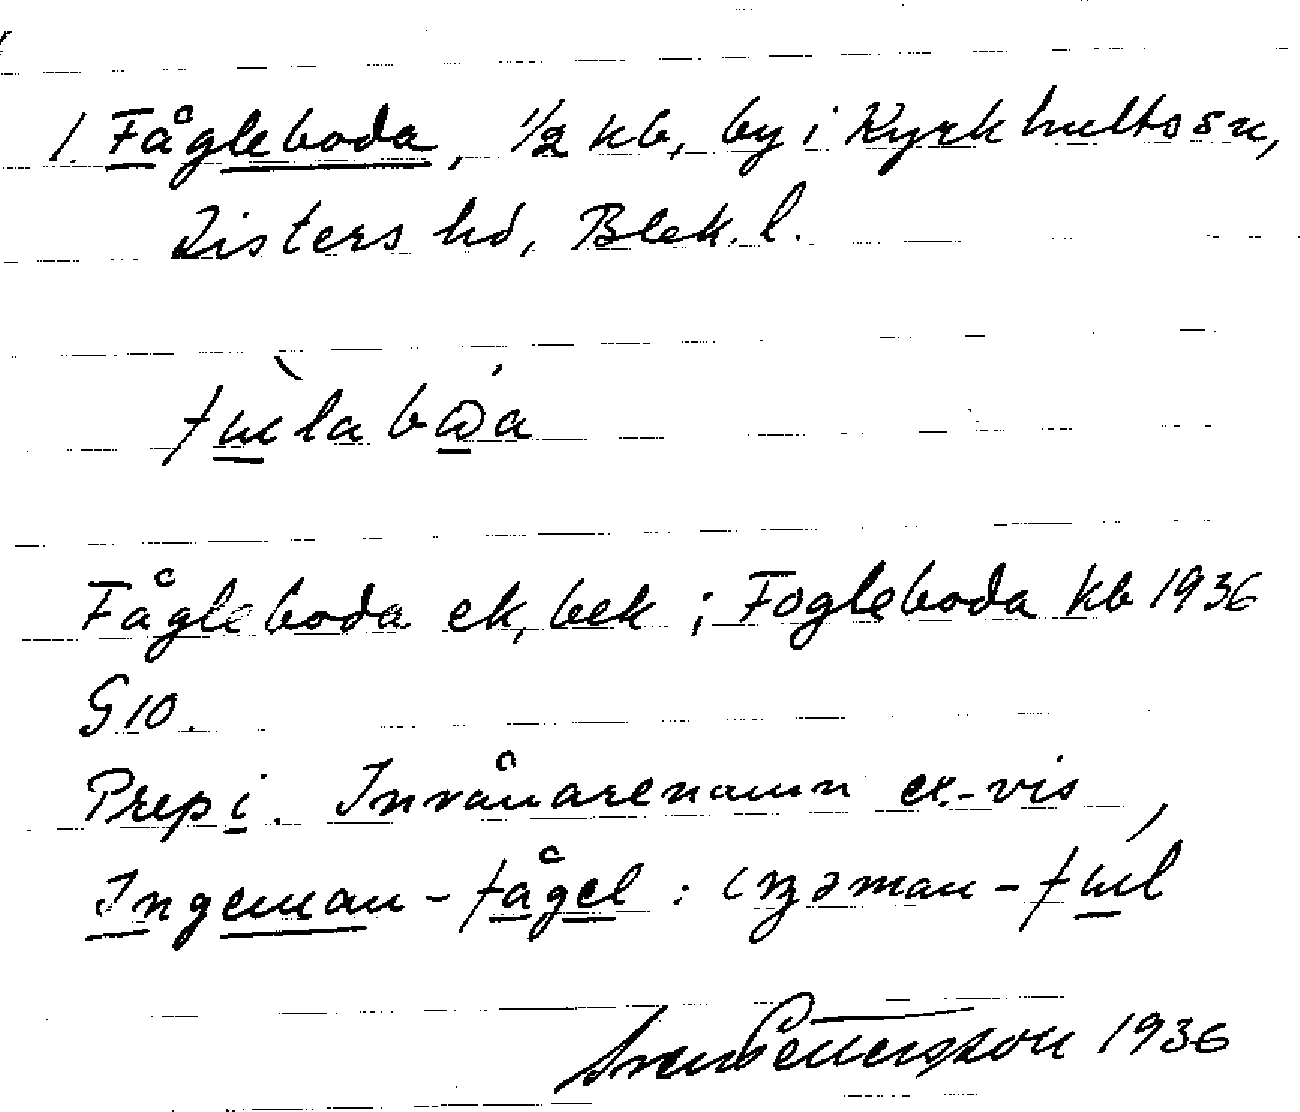 1. Fågleboda, 1/2 kb, by i Kyrkhults sn,
Listers hd, Blek. l.
Fågleboda ek, bek ; Fogleboda kb 1936
§ 10.
Prep i. Invånarenamn ex.-vis
Ingeman-Fågel :
Sven Pettersson 1936